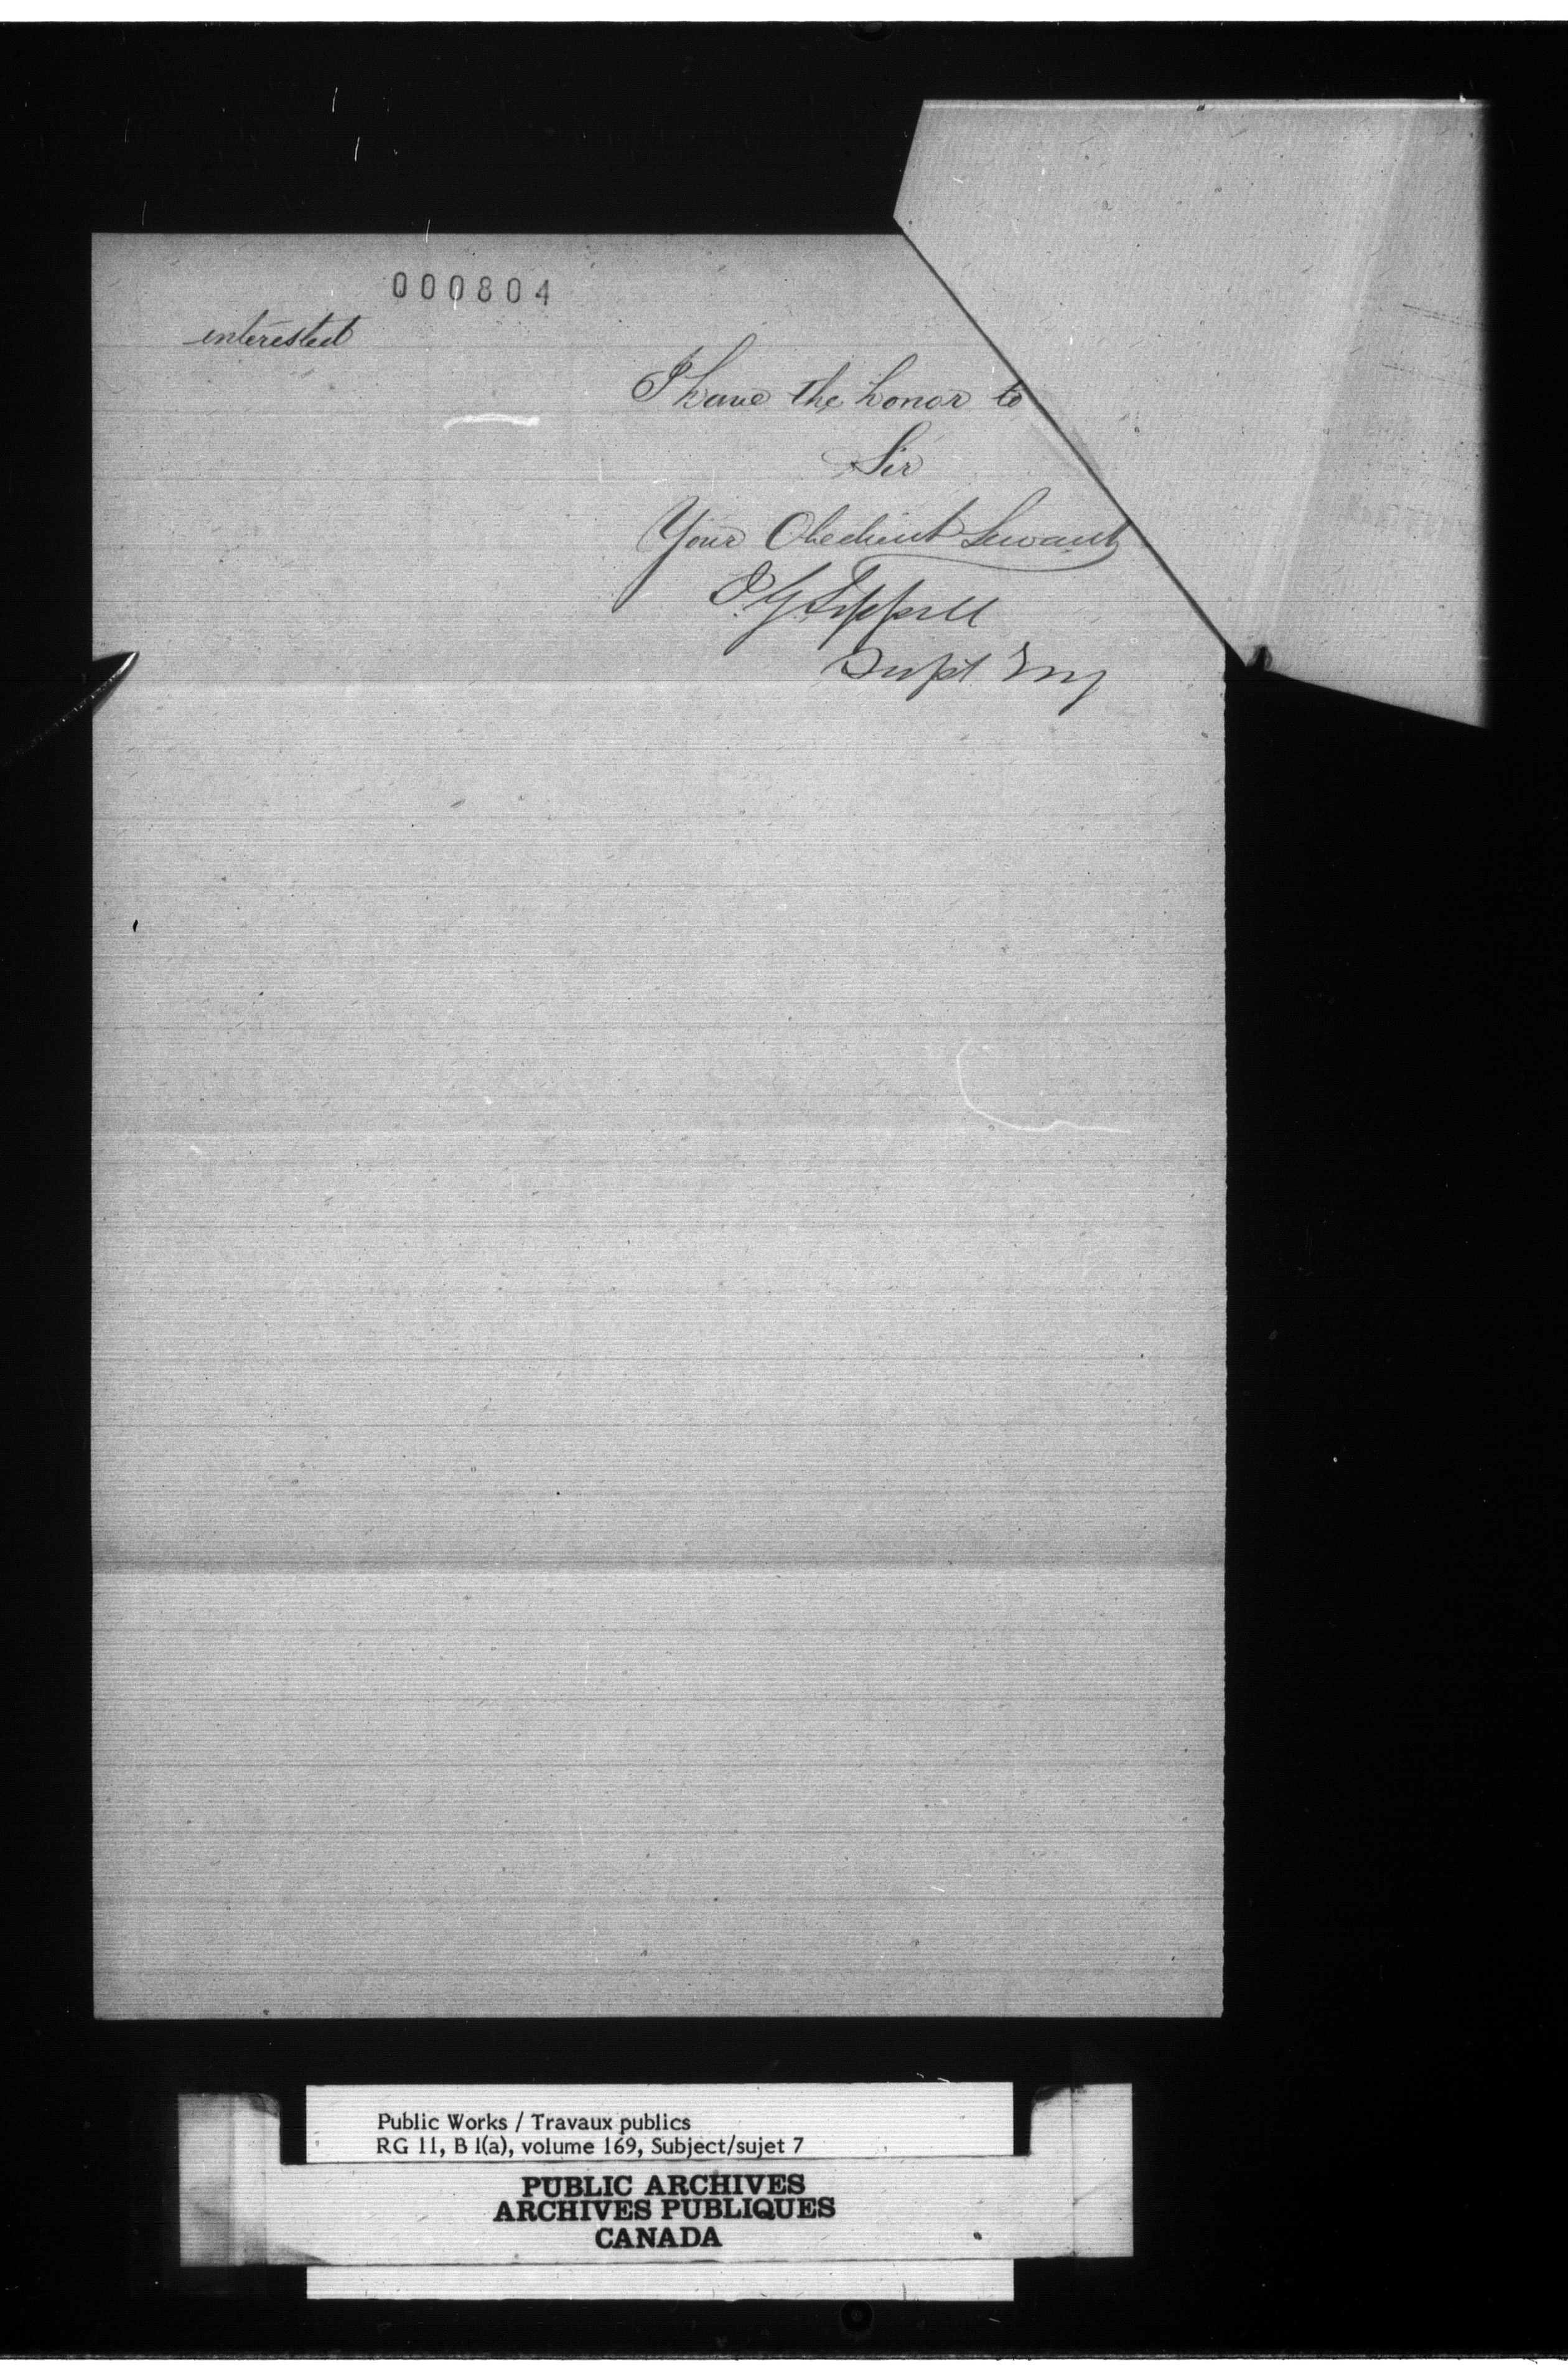 000804
interested
I have the honor to
Sir
Your Obedient Servant
Supt Eng
Public Works / Travaux publics
RG 11, B 1(a), volume 169, Subject/sujet 7
PUBLIC ARCHIVES
ARCHIVES PUBLIQUES
CANADA